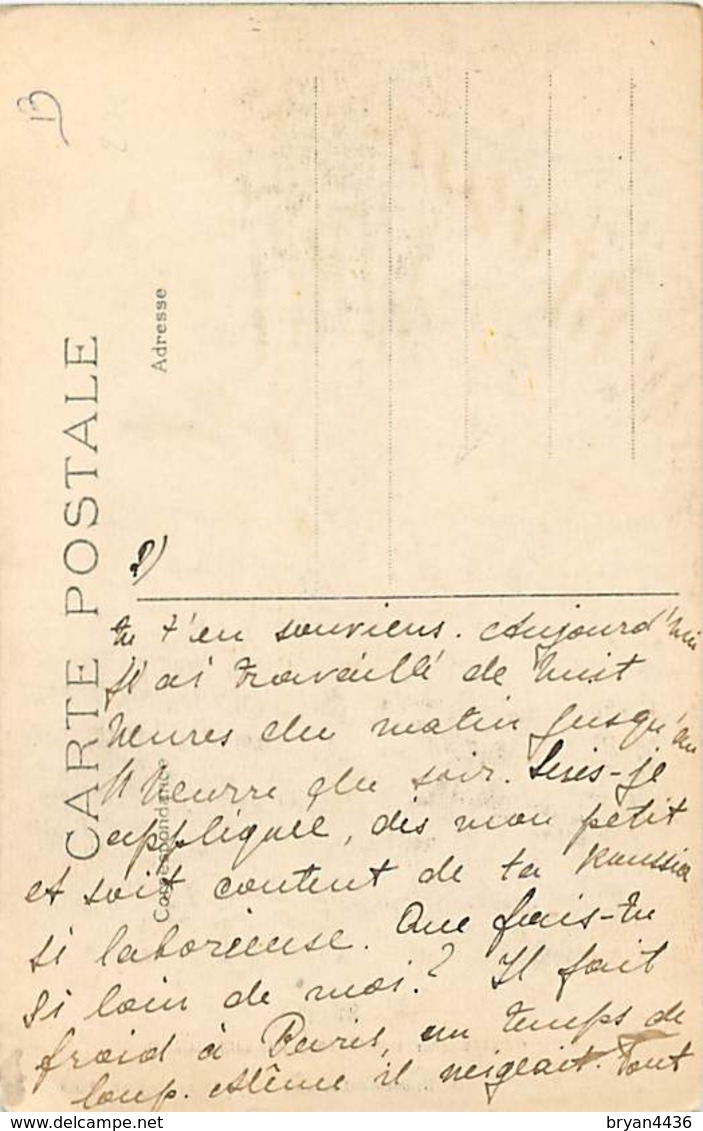 13
CARTE POSTALE
Adresse
Correspondance
2)
tu t'en souviens. Aujourd'hui
j'ai travaillé de huit
heures du matin jusqu'au
11 heurre du soir. Suis-je
appliquée, dis mon petit
et soit content de ta
si laborieuse. Que fais-tu
si loin de moi? Il fait
froid à Paris, un temps de
loup. Même il neigeait. Tout
bryan4436